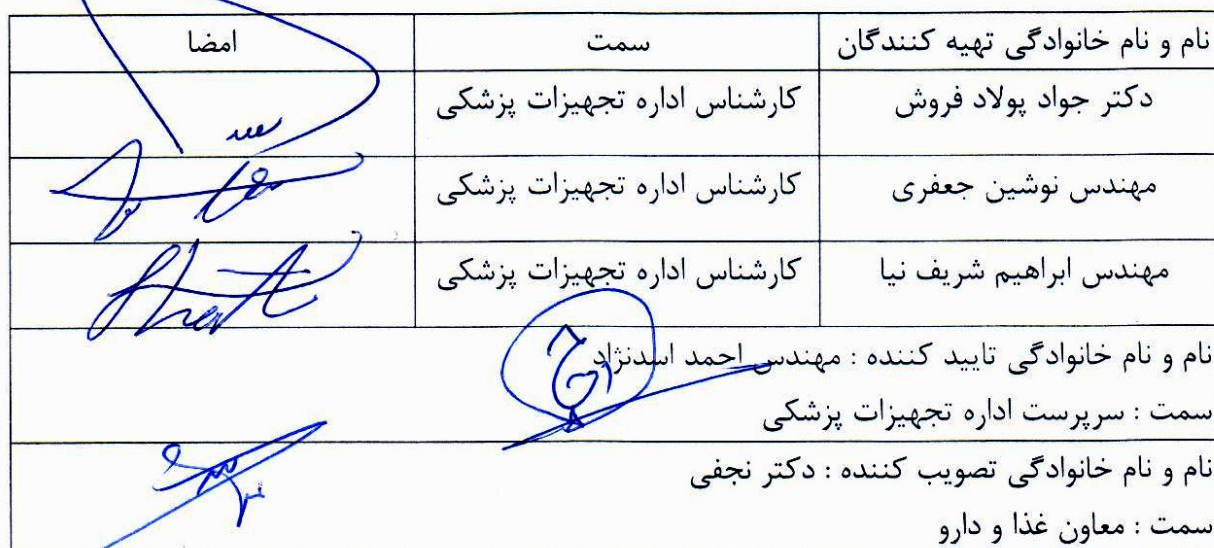 نام و نام خانوادگی تهیه کنندگان سمت امضا
دکتر جواد پولاد فروش کارشناس اداره تجهیزات پزشکی
مهندس نوشین جعفری کارشناس اداره تجهیزات پزشکی
مهندس ابراهیم شریف نیا کارشناس اداره تجهیزات پزشکی
نام و نام خانوادگی تایید کننده : مهندس احمد اسدنژاد
سمت : سرپرست اداره تجهیزات پزشکی
نام و نام خانوادگی تصویب کننده : دکتر نجفی
سمت : معاون غذا و دارو